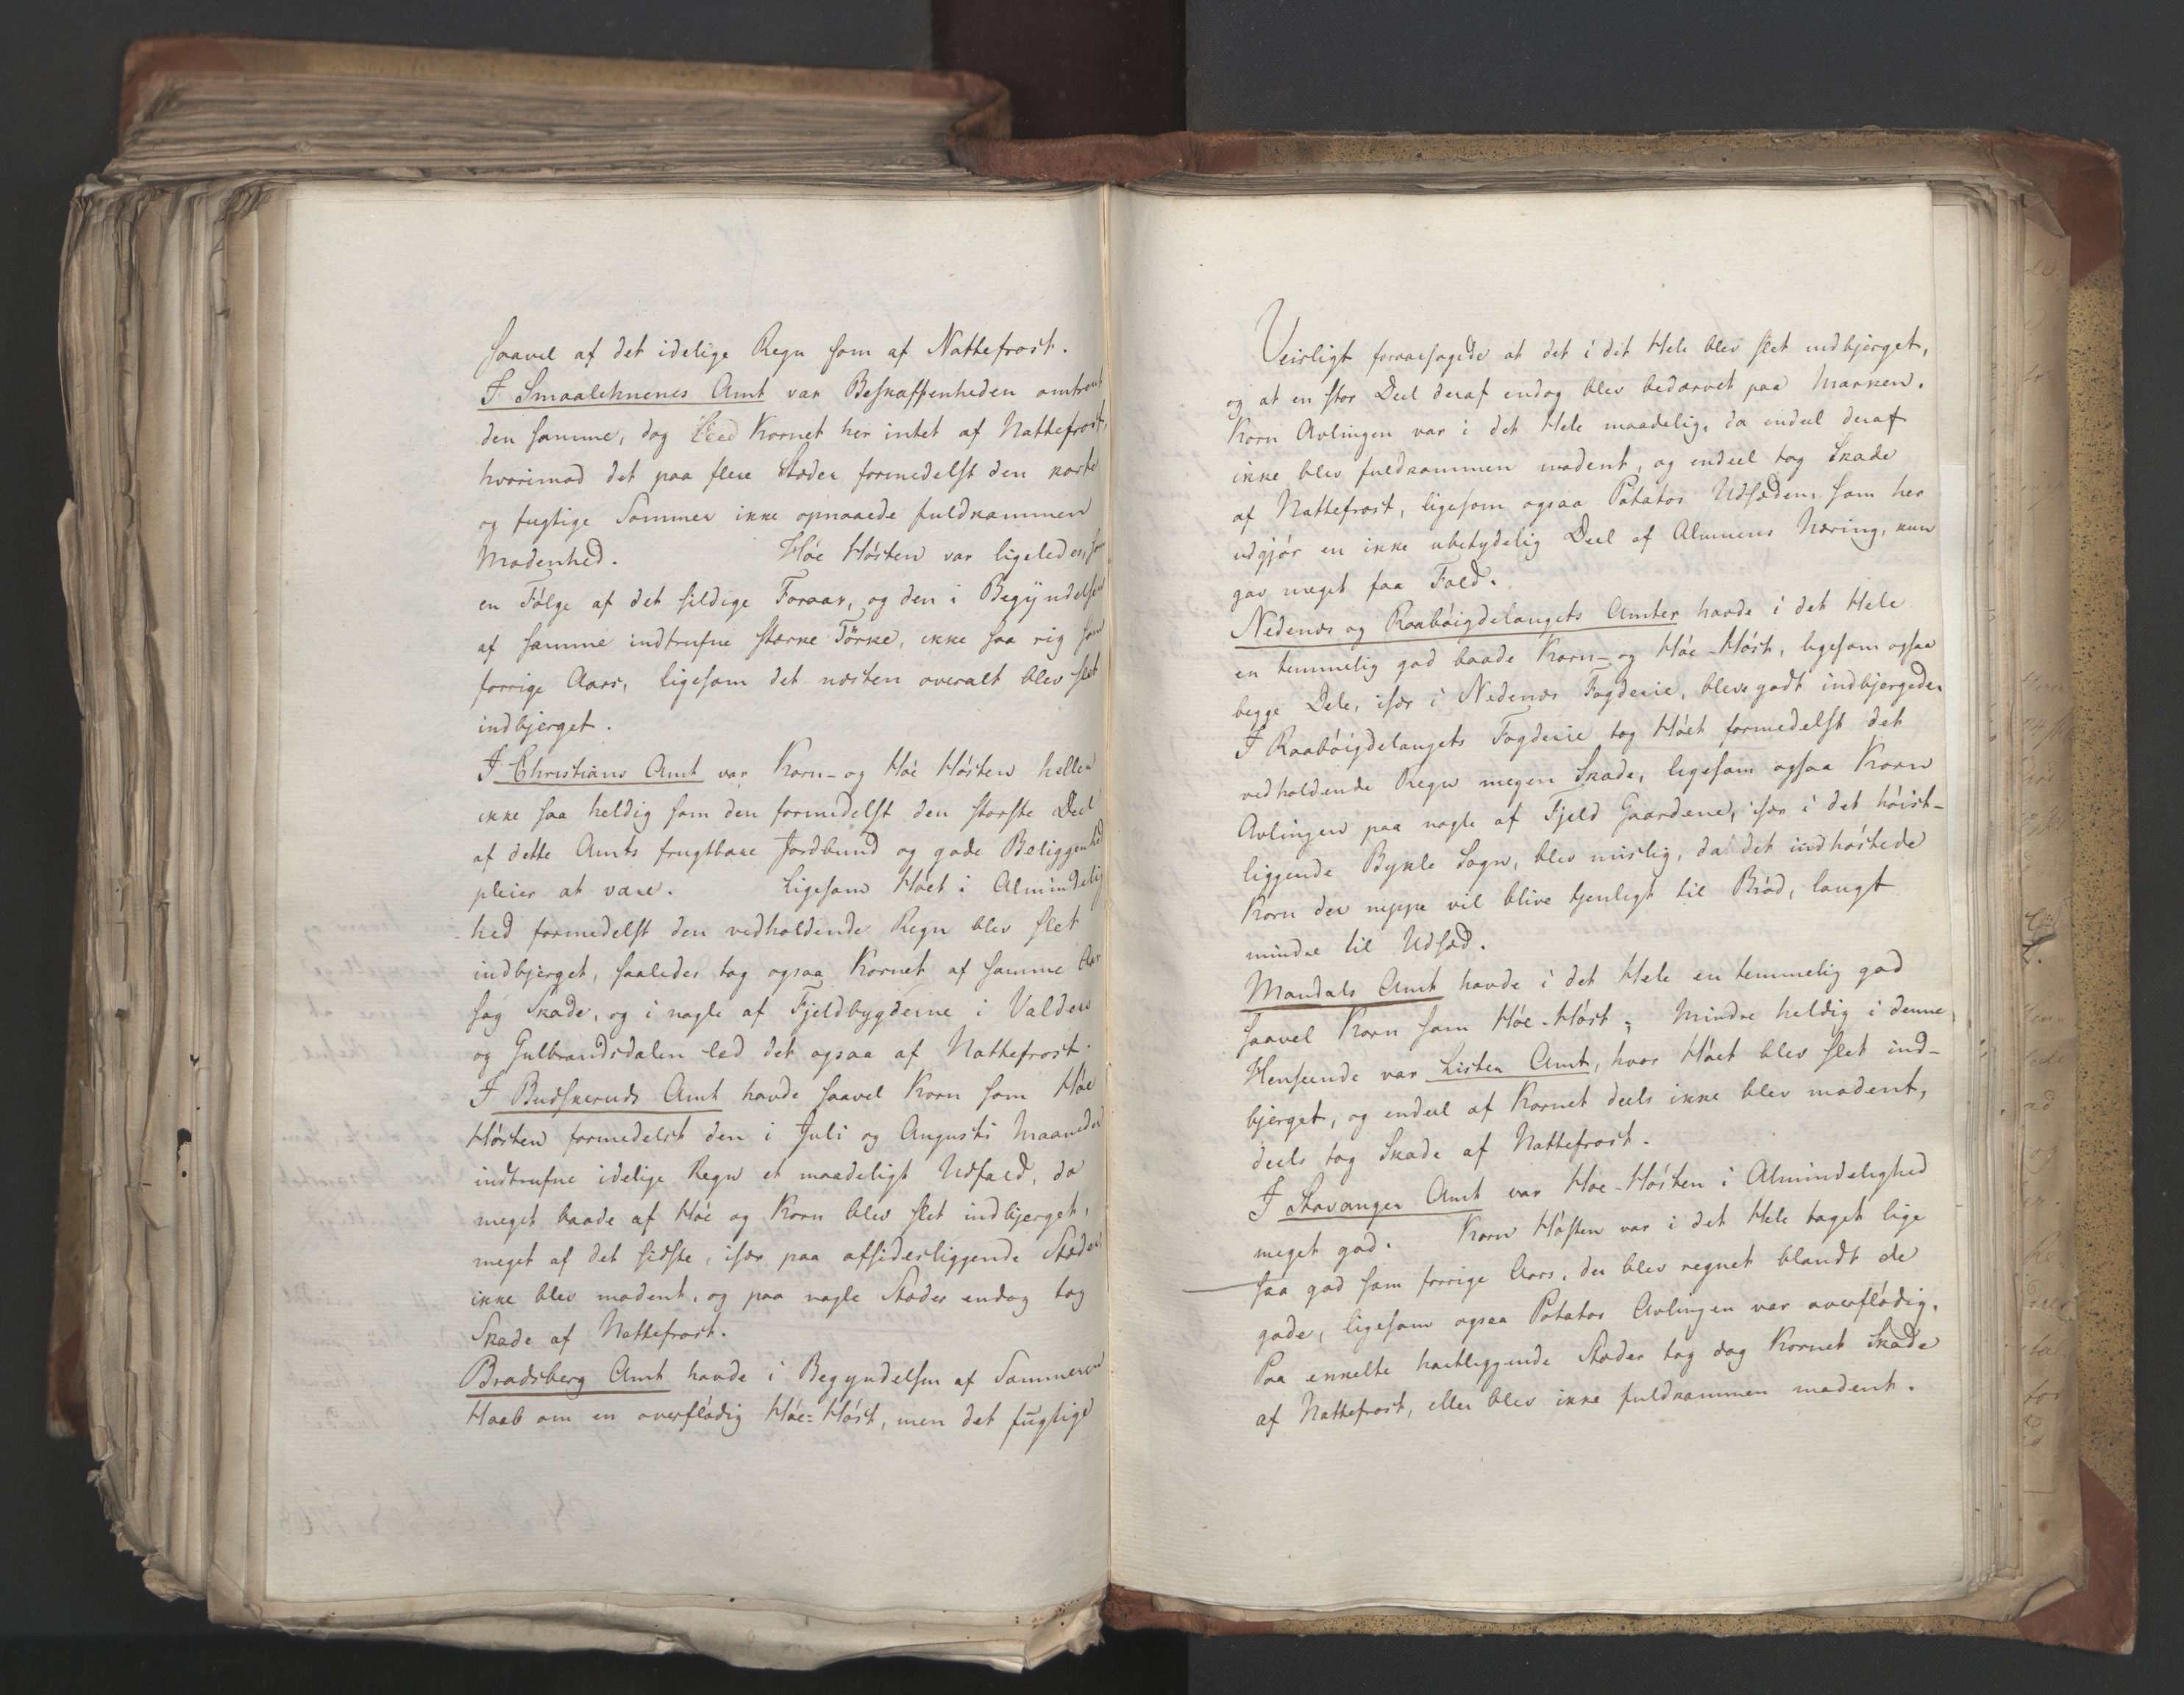 saavel af det idelige Regn som af Nattefrost.
I Smaalehnenes Amt var Beskaffenheden omtrent
den samme, dog leed Kornet her intet af Nattefrost,
hvorimod det paa flere Stæder formedelst den korte
og fugtige Sommer ikke opnaaede fuldkammen
Modenhed. Høe Høsten var ligeledes, som
en Følge af det sildige Foraar, og den i Begyndelsen
af samme indtrufne stærke Törke, ikke saa rig som
forrige Aars, ligesom det næsten overalt blev slet
indbjerget.
I Christians Amt var Korn- og Høe Høsten heller
ikke saa heldig som den formedelst den største Deel
af dette Amts frugtbare Jordbund og gode Beliggenhed
pleier at være. Ligesom Høet i Almindelig
-hed formedelst den vedholdende Regn blev slet
indbjerget, saaledes tog ogsaa Kornet af samme Aar
sag Skade, og i nogle af Fjeldbygderne i Valders
og Gulbrandsdalen led det ogsaa af Nattefrost.
I Budskeruds Amt havde saavel Korn som Høe
Høsten formedelst den i Juli og Augusti Maaneder
indtrufne idelige Regn et maadeligt Udfald, da
meget baade af Høe og Korn blev slet indbjerget,
meget af det sidste, især paa afsidesliggende Stæder,
ikke blev modent, og paa nogle Stæder endog tog
Skade af Nattefrost.
Bradsberg Amt havde i Begyndelsen af Sommeren
Haab om en overflødig Høe-Høst, men det fugtige
Veirligt foraarsagede at det i det Hele blev slet indbjerget,
og at en stor Deel deraf endog blev bedærvet paa Marken.
Korn Avlingen var i det Hele maadelig, da endeel deraf
ikke blev fuldkammen modent, og endeel tog Skade
af Nattefrost, ligesom ogsaa Potatos Udsæden som her
udgjør en ikke ubetydelig Deel af Almuens Næring, kun
gav meget faa Fold.
Nedenæs og Raabøigdelaugets Amter havde i det Hele
en temmelig god baade Korn- og Høe-Høst, ligesom ogsaa
begge Dele, især i Nedenæs Fogderie, bleve godt indbjergede.
I Raabøigdelaugets Fogderie tog Høet formedelst det
vedholdende Regn megen Skade, ligesom ogsaa Korn
Avlingen paa nogle af Fjeld Gaardene, især i det høist-
liggende Bykle Sogn, blev mislig, da det indhøstede
Korn der neppe vil blive tjenligt til Brød, langt
mindre til Udsæd.
Mandals Amt havde i det Hele en temmelig god
saavel Korn som Høe-Høst; Mindre heldig i denne
Henseende var Lister Amt, hvor Høet blev slet ind-
bjerget, og endeel af Kornet deels ikke blev modent,
deels tog Skade af Nattefrost.
I Stavanger Amt var Høe-Høsten i Almindelighed
meget god. Korn Høsten var i det Hele taget lige
saa god som forrige Aars, der blev regnet blandt de
gode, ligesom ogsaa Potatos Avlingen var overflødig.
Paa enkelte høitliggende Stæder tog dog Kornet Skade
af Nattefrost, eller blev ikke fuldkammen modent.